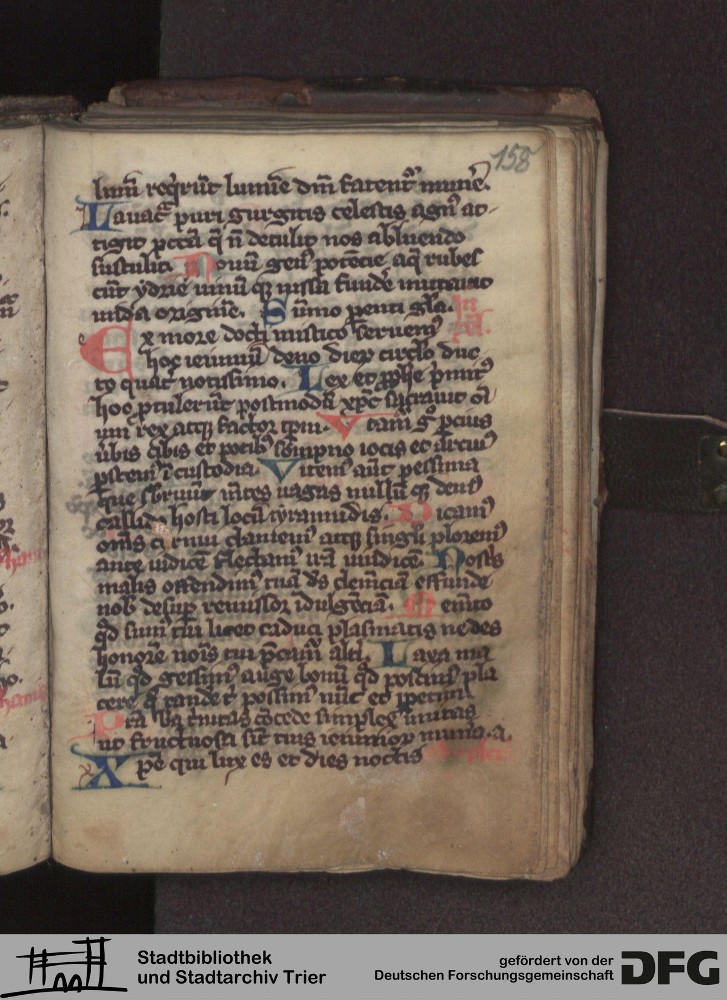 158
lum̄ reqͥrūt lumīe dm̄ fatentᷣ munē.
Lauacͣ puri gurgitis celestis agn᷒ at-
tigit pctā q̄ n̄ detulit nos abluendo
sustulit. Nouū gen᷒ potēcie aq̄ rubes
cūt ydrie uinū qꝫ iussa fundē mutauit
unda originē. Sūmo penti gl̓a.
Ex more docti mistico seruem᷒
hoc ieiuniū deno dieꝝ circl̓o duc
to quatͣ notissimo. Lex et ꝓph̓e pͥmit᷒
hoc ꝓtulerūt postmodū xp̄c sacrauit oī
um rex atqꝫ factor tp̄m. Vtam᷒ gͦ ꝑcius
ūbis cibis et potib᷒ sōmpno iocis et arcius
ꝑstem᷒ ī custodia. Vitem᷒ aūt pessima
que sbruūt mētes uagas nullū qꝫ dem᷒
callidi hosti locū tyrannidis. Dicam᷒
om̄s cernui clamem᷒ atqꝫ singl̓i plorem᷒
ante iudicē flectam᷒ irā uindicē. Nostͥs
malis offendim᷒ tuā ds̄ clem̄ciā effunde
nob̓ desuꝑ remissor īdulgēciā. Memēto
qd̄ sum᷒ tui licet caduci plasmatis ne des
honorē noīs tui p̄cam᷒ altī. Laxa ma
lū qd̄ gessim᷒ auge bonū qd̄ poscim᷒ pla
cere qͦ tandē tͥ possim᷒ nūc et ꝑpetim
Pͬsta bͣta tͥnitas cōcede simplex unitas
ut fructuosa sīt tuis ieiunioꝝ munͣa. a.
Xpe qui lux es et dies noctis
Stadtbibliothek
und Stadtarchiv Trier
gefördert von der
Deutschen Forschungsgemeinschaft
DFG